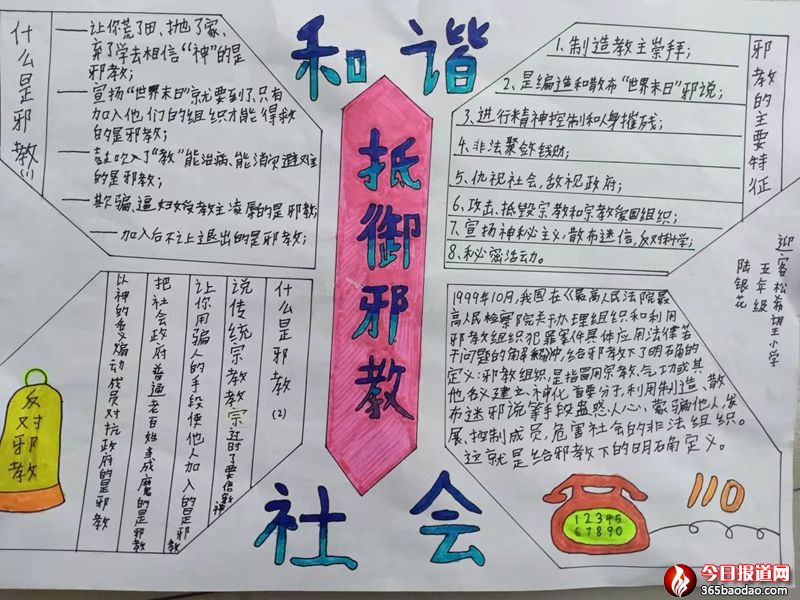 和谐
抵御邪教
社会
什么是邪教(1)
——让你荒了田、抛了家、
弃了学去相信“神”的是
邪教;
——宣扬“世界末日”就要到了,只有
加入他们的组织才能得救
的是邪教;
——鼓吹入了“教”能治病、能消灾避难
的是邪教;
——欺骗、逼妇女受教主凌辱的是邪教;
——加入后不让退出的是邪教;
邪教的主要特征
1、制造教主崇拜;
2、是编造和散布“世界末日”邪说;
3、进行精神控制和人身摧残;
4、非法聚敛钱财;
5、仇视社会,敌视政府;
6、攻击、抵毁宗教和宗教爱国组织;
7、宣扬神秘主义,散布迷信,反对科学;
8、秘密活动。
迎客松希望小学
五年级
陆银花
什么是邪教(2)
说传统宗教教宗过时了要信新神
让你用骗人的手段使他人加入的是邪教
把社会政府普通老百姓当成魔的是邪教
以神的名义煽动成员对抗政府的是邪教
反对邪教
1999年10月,我国在《最高人民法院最
高人民检察院关于办理组织和利用
邪教组织犯罪案件具体应用法律若
干问题的解释》中,给邪教下了明确的
定义:邪教组织是指冒用宗教、气功或其
他名义建立、神化首要分子,利用制造、散
布迷邪说等手段蛊惑人心、蒙骗他人,发
展、控制成员,危害社会的非法组织。
这就是给邪教下的明确定义。
110
12345
67890
今日报道网
365baodao.com